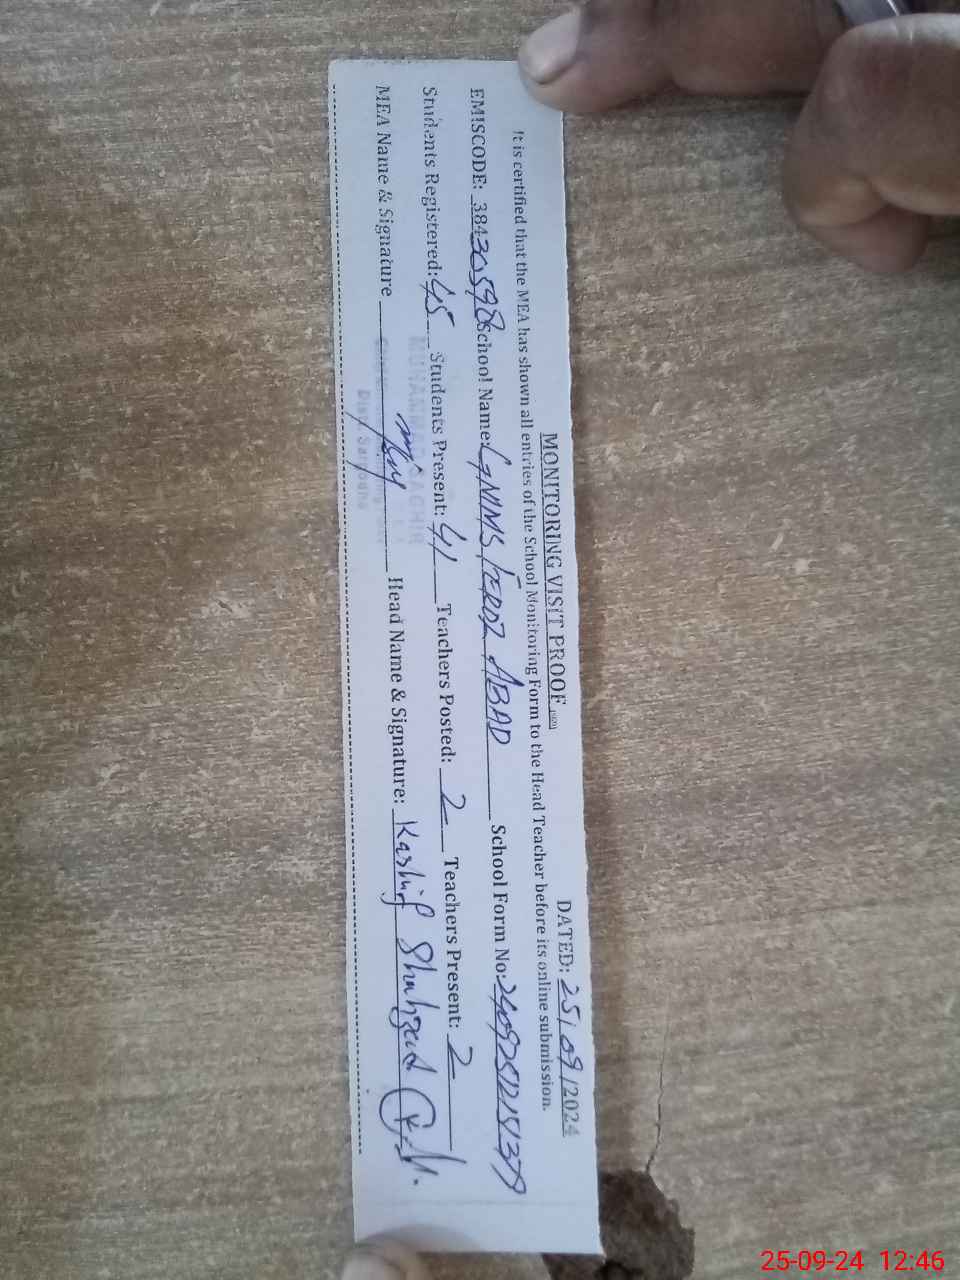 MONITORING VISIT PROOF DATED: 25/09/2024
It is certified that the MEA has shown all entries of the School Monitoring Form to the Head Teacher before its online submission.
EMISCODE: 38430598 School Name: GNMS FEROZ ABAD School Form No: 24092512151379
Students Registered: 45 Students Present: 41 Teachers Posted: 2 Teachers Present: 2
MEA Name & Signature Head Name & Signature: Kashif Shahzad
Distt. Sargodha
25-09-24 12:46